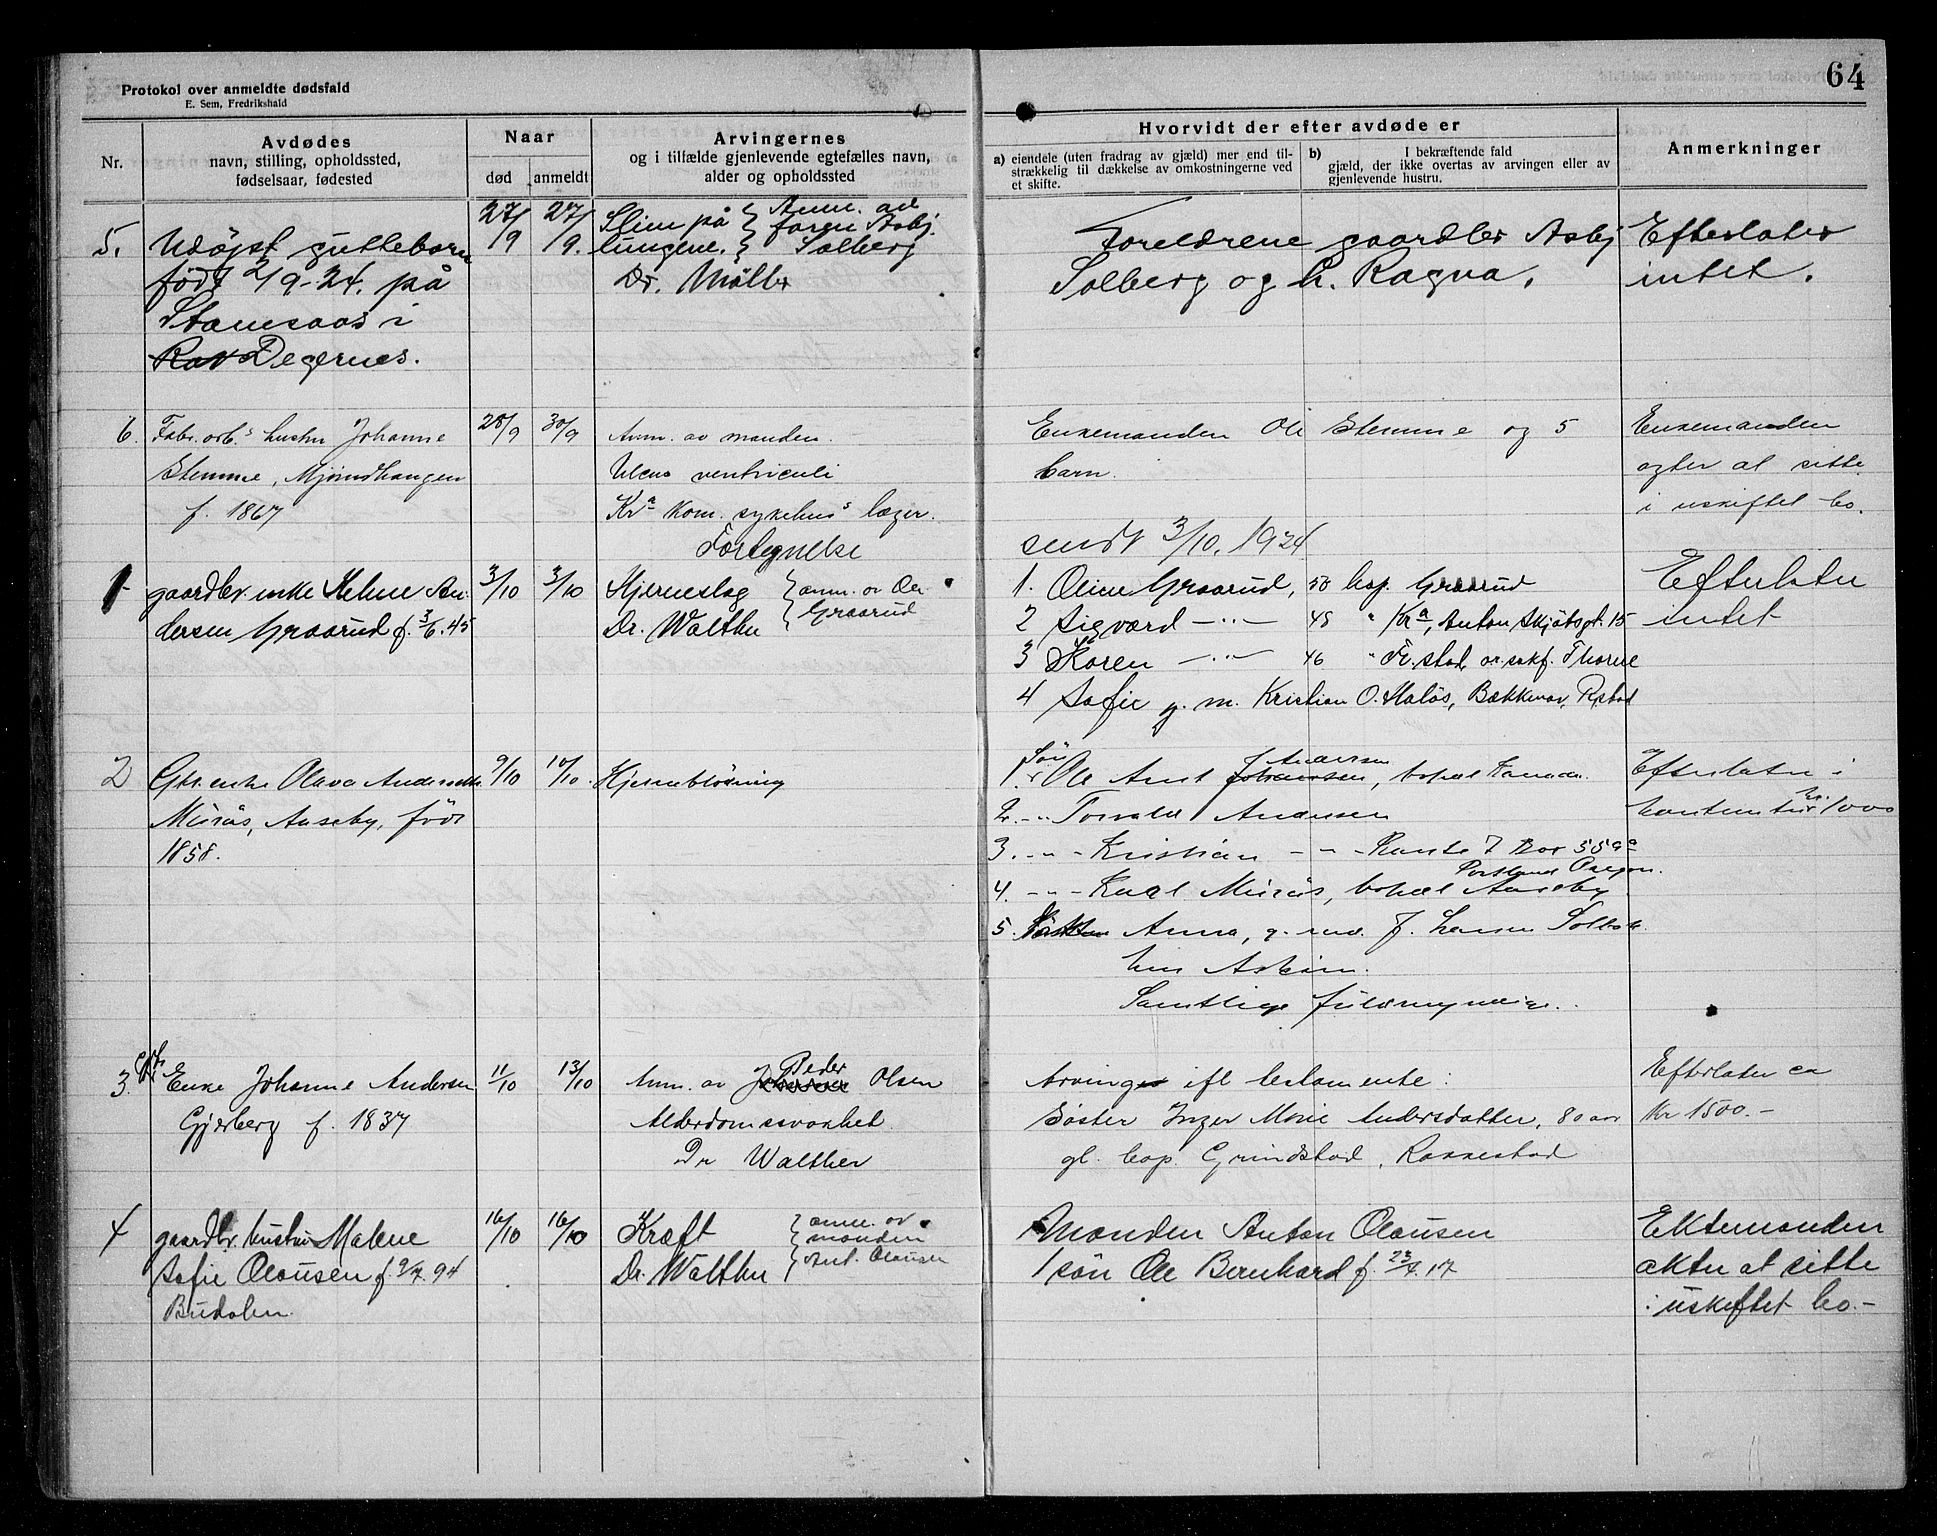 64
Protokol over anmeldte dødsfald
E. Sem, Fredrikshald
Nr.
Avdødes
navn, stilling, opholdssted,
fødselsaar, fødested
Naar
død
anmeldt
Arvingernes
og i tilfælde gjenlevende egtefælles navn,
alder og opholdssted
Hvorvidt der efter avdøde er
a) eiendele (uten fradrag av gjæld) mer end til-
strækkelig til dækkelse av omkostningerne ved
et skifte.
b) I bekræftende fald
gjæld, der ikke overtas av arvingen eller av
gjenlevende hustru.
Anmerkninger
5. Udøpt guttebarn
født 2/9-24. på
i
Degernes.
27/9
27/9.
Slim på
lungene.
Anm. av
faren Asbj.
Solberg
Dr. Møller
Foreldrene gaardbr Asbj
Solberg og h. Ragna.
Efterlater
intet.
6. Fabr. arb.s hustru Johanne
Stemme, Mjørudhaugen
f. 1867
28/9
30/9
Anm. av manden.
Ulcus ventriculi
Kra kom. sykehus's læger.
Fortegnelse
Enkemanden Ole Stemme og 5
barn.
sendt 3/10. 1924
Enkemanden
agter at sitte
i uskiftet bo.
1 gaardbr. enke Helene An-
dersen Graarud f. 3/6.45
3/10
3/10
Hjerneslag
Dr. Walther
anm. av
Graarud
1. Oline Graarud, 50 bop. Graarud
2 Sigvard -"- 48 " Kra, Anton Skjøtsgt. 15
3 Karen -"- 46 " Fr.stad
4 Sofie g. m. Kristian O. Haløs, Bækkevar, R.stad
Efterlater
intet
2 Gbr. enke Olava Andersdtr.
Mirås, Aaseby, født
1858.
9/10
10/10
Hjerneblødning
Søn
1. Ole Arnt Andersen
Johansen, bopæl
2. -"- Torvald Andersen
3. -"- Kristian -"- Route 7 Box 559a
Portland Oregon.
4. -"- Karl Mirås, bopæl Aaseby
5. Anna, g. m. J. Larsen
Askim.
Samtlige fuldmyndige.
Efterlater i
kontanter kr. 1000
3. Gbr. Enke Johanne Andersen
Gjerberg f. 1837
11/10
13/10
Anm. av Peder Olsen
Alderdomssvakhet
Dr Walther
Arvinger ifl testamente:
Søster Inger Marie Andersdatter, 80 aar
gl. bop. Grindstad, Rakkestad
Efterlater ca
Kr 1500.-
4 gaardbr. hustru Malene
Sofie Olausen f. 9/7. 94
Budalen
16/10
16/10
Kræft
Dr. Walther
anm. av
manden
Ant. Olausen
Manden Anton Olausen
1 søn Ole Bernhard f. 23/7. 17
Ektemanden
akter at sitte
i uskiftet bo.-